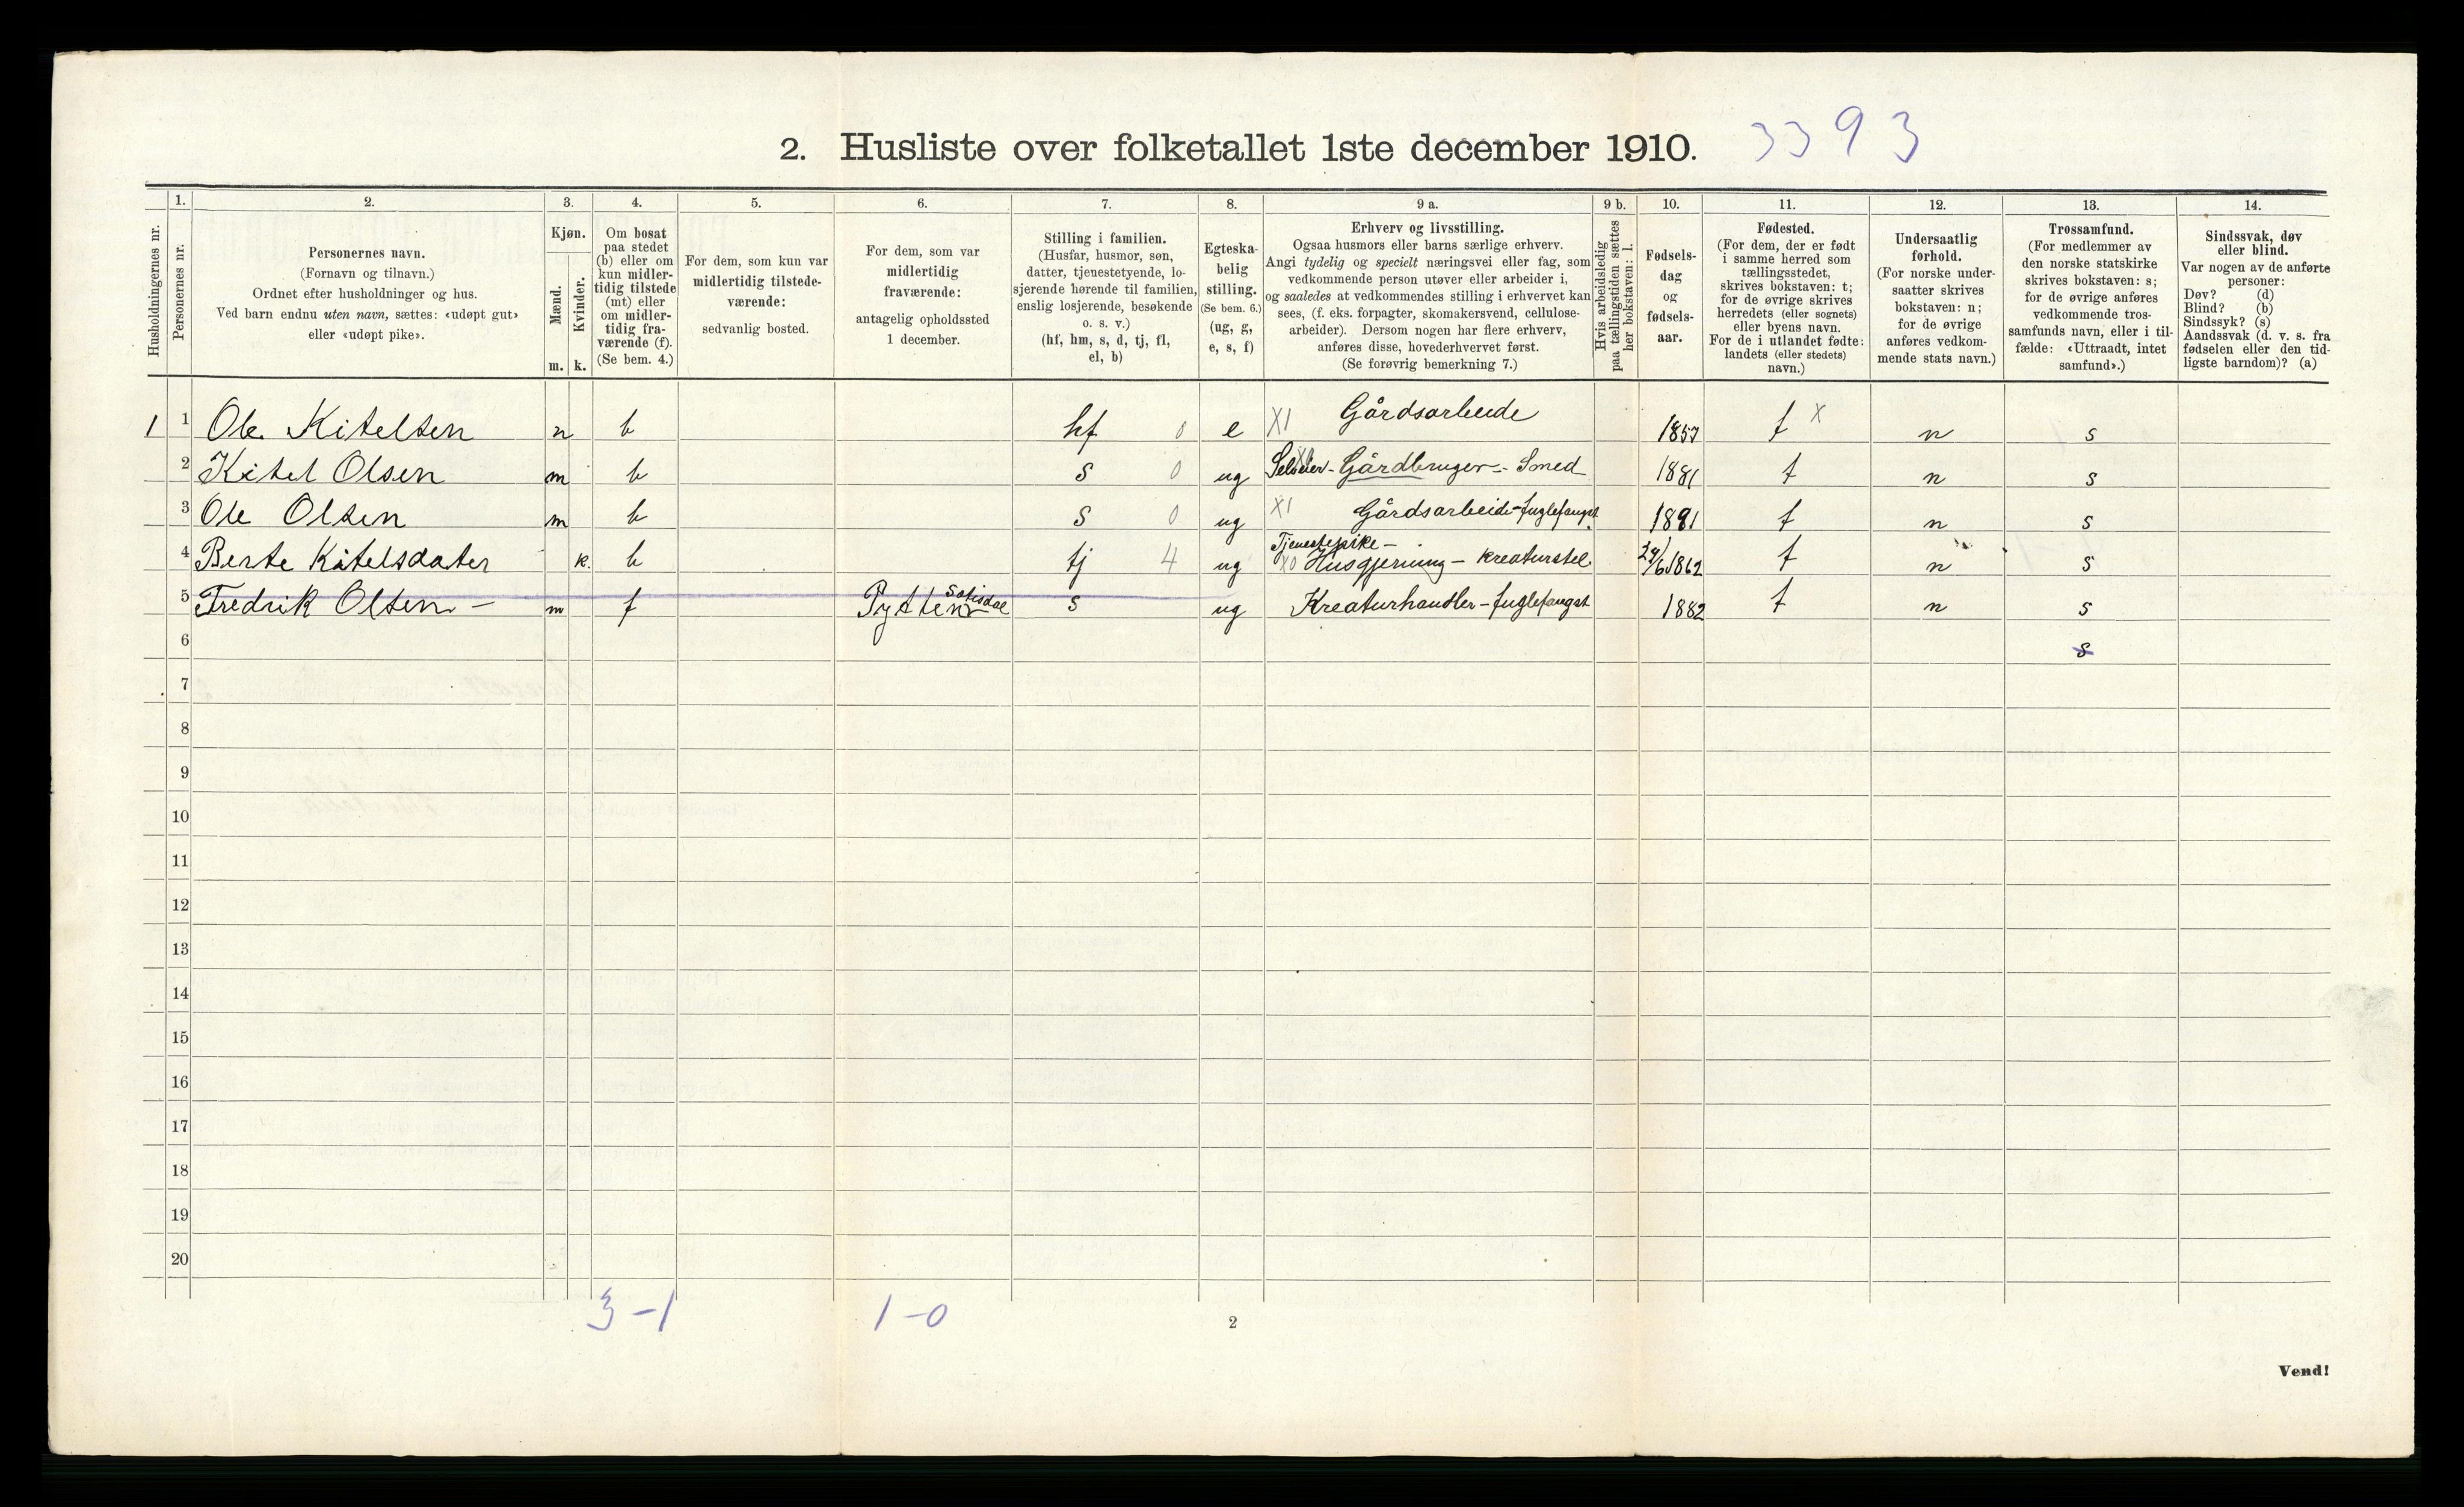 2. Husliste over folketallet 1ste december 1910. 3393
Husholdningernes nr.
1.
Personernes nr.
2.
Personernes navn.
(Fornavn og tilnavn.)
Ordnet efter husholdninger og hus.
Ved barn endnu uten navn, sættes: «udøpt gut»
eller «udøpt pike».
3.
Kjøn.
Mænd.
Kvinder.
m. k.
4.
Om bosat
paa stedet
(b) eller om
kun midler-
tidig tilstede
(mt) eller
om midler-
tidig fra-
værende (f).
(Se bem. 4.)
5.
For dem, som kun var
midlertidig tilstede-
værende:
sedvanlig bosted.
6.
For dem, som var
midlertidig
fraværende:
antagelig opholdssted
1 december.
7.
Stilling i familien.
(Husfar, husmor, søn,
datter, tjenestetyende, lo-
sjerende hørende til familien,
enslig losjerende, besøkende
o. s. v.)
(hf, hm, s, d, tj, fl,
el, b)
8.
Egteska-
belig
stilling.
(Se bem. 6.)
(ug, g,
e, s, f)
9 a.
Erhverv og livsstilling.
Ogsaa husmors eller barns særlige erhverv.
Angi tydelig og specielt næringsvei eller fag, som
vedkommende person utøver eller arbeider i,
og saaledes at vedkommendes stilling i erhvervet kan
sees, (f. eks. forpagter, skomakersvend, cellulose-
arbeider). Dersom nogen har flere erhverv,
anføres disse, hovederhvervet først.
(Se forøvrig bemerkning 7.)
9 b.
Hvis arbeidsledig
paa tællingstiden sættes
her bokstaven: l.
10.
Fødsels-
dag
og
fødsels-
aar.
11.
Fødested.
(For dem, der er født
i samme herred som
tællingsstedet,
skrives bokstaven: t;
for de øvrige skrives
herredets (eller sognets)
eller byens navn.
For de i utlandet fødte:
landets (eller stedets)
navn.)
12.
Undersaatlig
forhold.
(For norske under-
saatter skrives
bokstaven: n;
for de øvrige
anføres vedkom-
mende stats navn.)
13.
Trossamfund.
(For medlemmer av
den norske statskirke
skrives bokstaven: s;
for de øvrige anføres
vedkommende tros-
samfunds navn, eller i til-
fælde: «Uttraadt, intet
samfund».)
14.
Sindssvak, døv
eller blind.
Var nogen av de anførte
personer:
Døv? (d)
Blind? (b)
Sindssyk? (s)
Aandssvak (d. v. s. fra
fødselen eller den tid-
ligste barndom)? (a)
1 1 Ole Kitelsen m b hf 0 e X1 Gårdsarbeide 1857 t x n s
2 Kitel Olsen m b s 0 ug Selveier - Gårdbruger - Smed 1881 t n s
3 Ole Olsen m b s 0 ug X1 Gårdsarbeide - fuglefangst 1891 t n s
4 Berte Kitelsdater k. b tj 4 ug Tjenestepike - X0 Husgjerning - kreaturstel 29/6 1862 t n s
5 Fredrik Olsen - m f Pytten Sætisdal s ug Kreaturhandler - fuglefangst 1882 t n s
6 s
7
8
9
10
11
12
13
14
15
16
17
18
19
20
3-1 1-0
2
Vend!